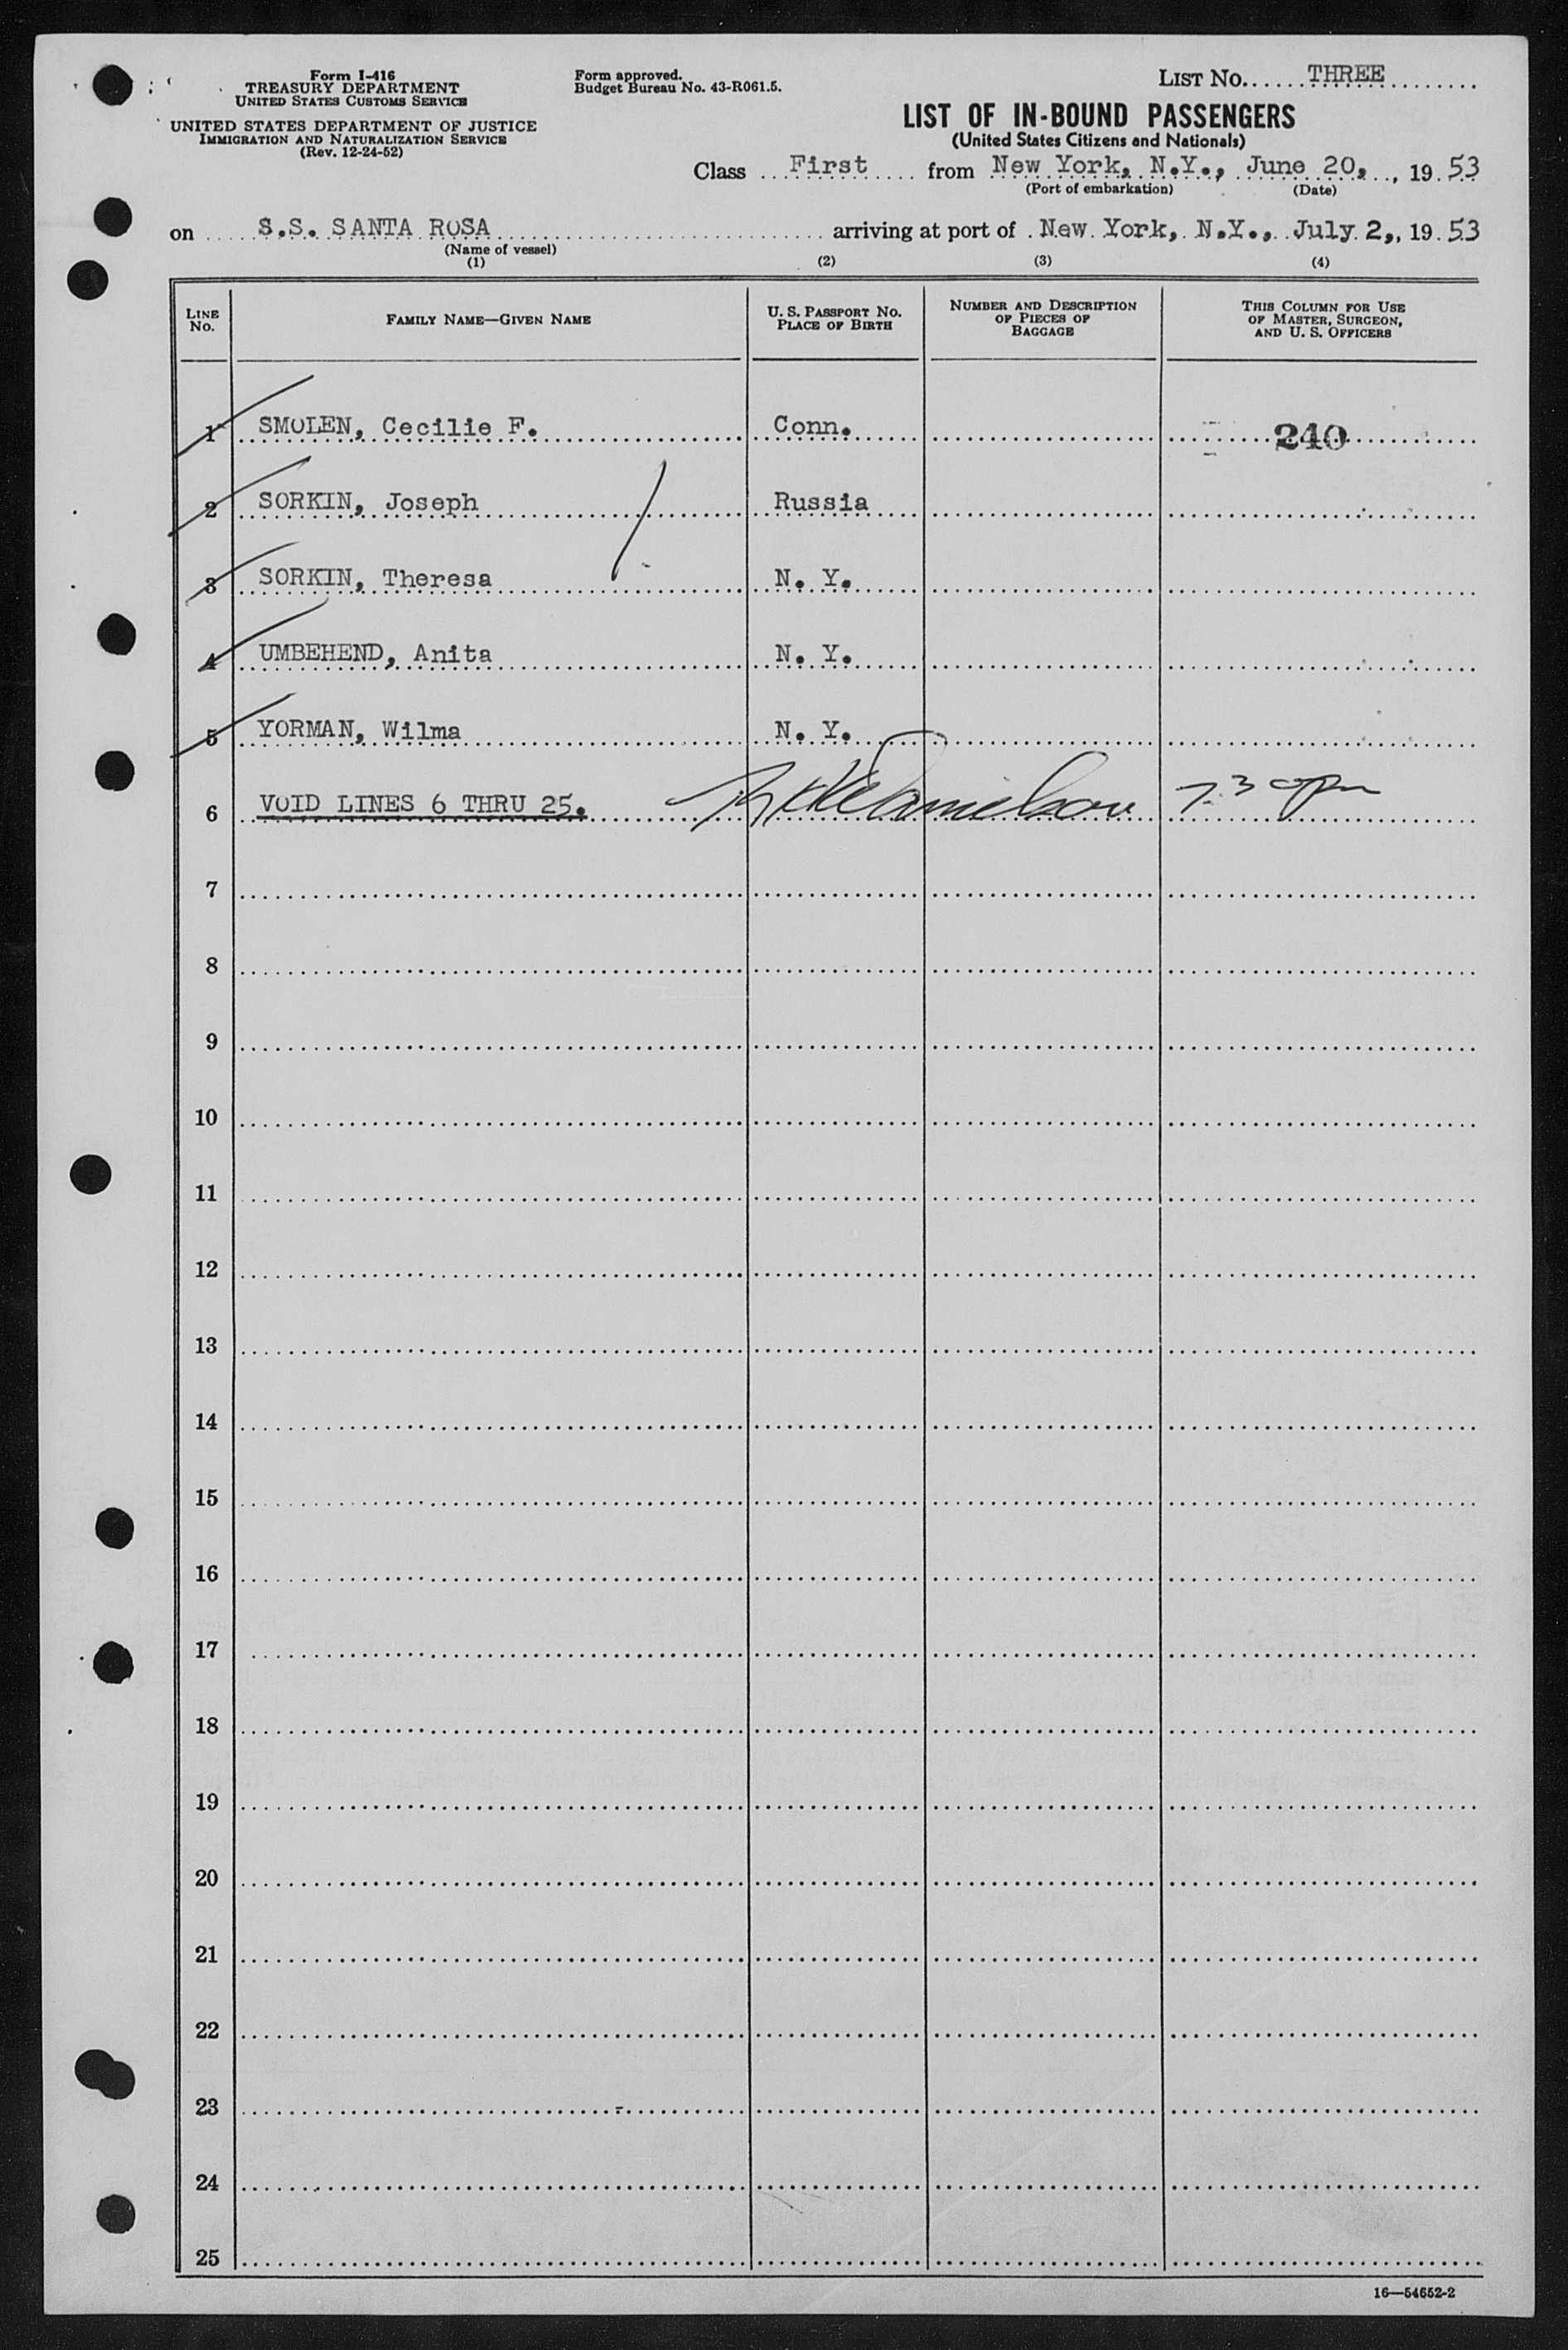 Form I-416
TREASURY DEPARTMENT
UNITED STATES CUSTOMS SERVICE
UNITED STATES DEPARTMENT OF JUSTICE
IMMIGRATION AND NATURALIZATION SERVICE
(Rev. 12-24-52)
Form approved.
Budget Bureau No. 43-R061.5.
LIST NO. THREE
LIST OF IN-BOUND PASSENGERS
(United States Citizens and Nationals)
Class First from New York, N.Y., June 20, , 19 53
(Port of embarkation) (Date)
on S.S. SANTA ROSA arriving at port of New York, N.Y., July 2, , 19 53
(Name of vessel)
(1) (2) (3) (4)
LINE NO. FAMILY NAME—GIVEN NAME U. S. PASSPORT NO. PLACE OF BIRTH NUMBER AND DESCRIPTION OF PIECES OF BAGGAGE THIS COLUMN FOR USE OF MASTER, SURGEON, AND U. S. OFFICERS
1 SMOLEN, Cecilie F. Conn. 240
2 SORKIN, Joseph Russia
3 SORKIN, Theresa N. Y.
4 UMBEHEND, Anita N. Y.
5 YORMAN, Wilma N. Y.
6 VOID LINES 6 THRU 25.
7
8
9
10
11
12
13
14
15
16
17
18
19
20
21
22
23
24
25
16—54652-2